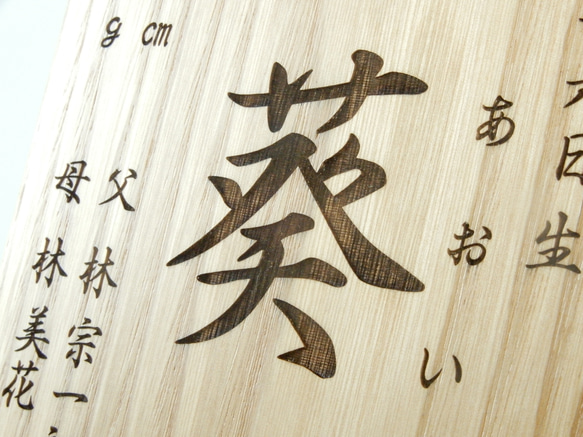 日生
あおい
葵
g cm
父 林 宗一
母 林 美花